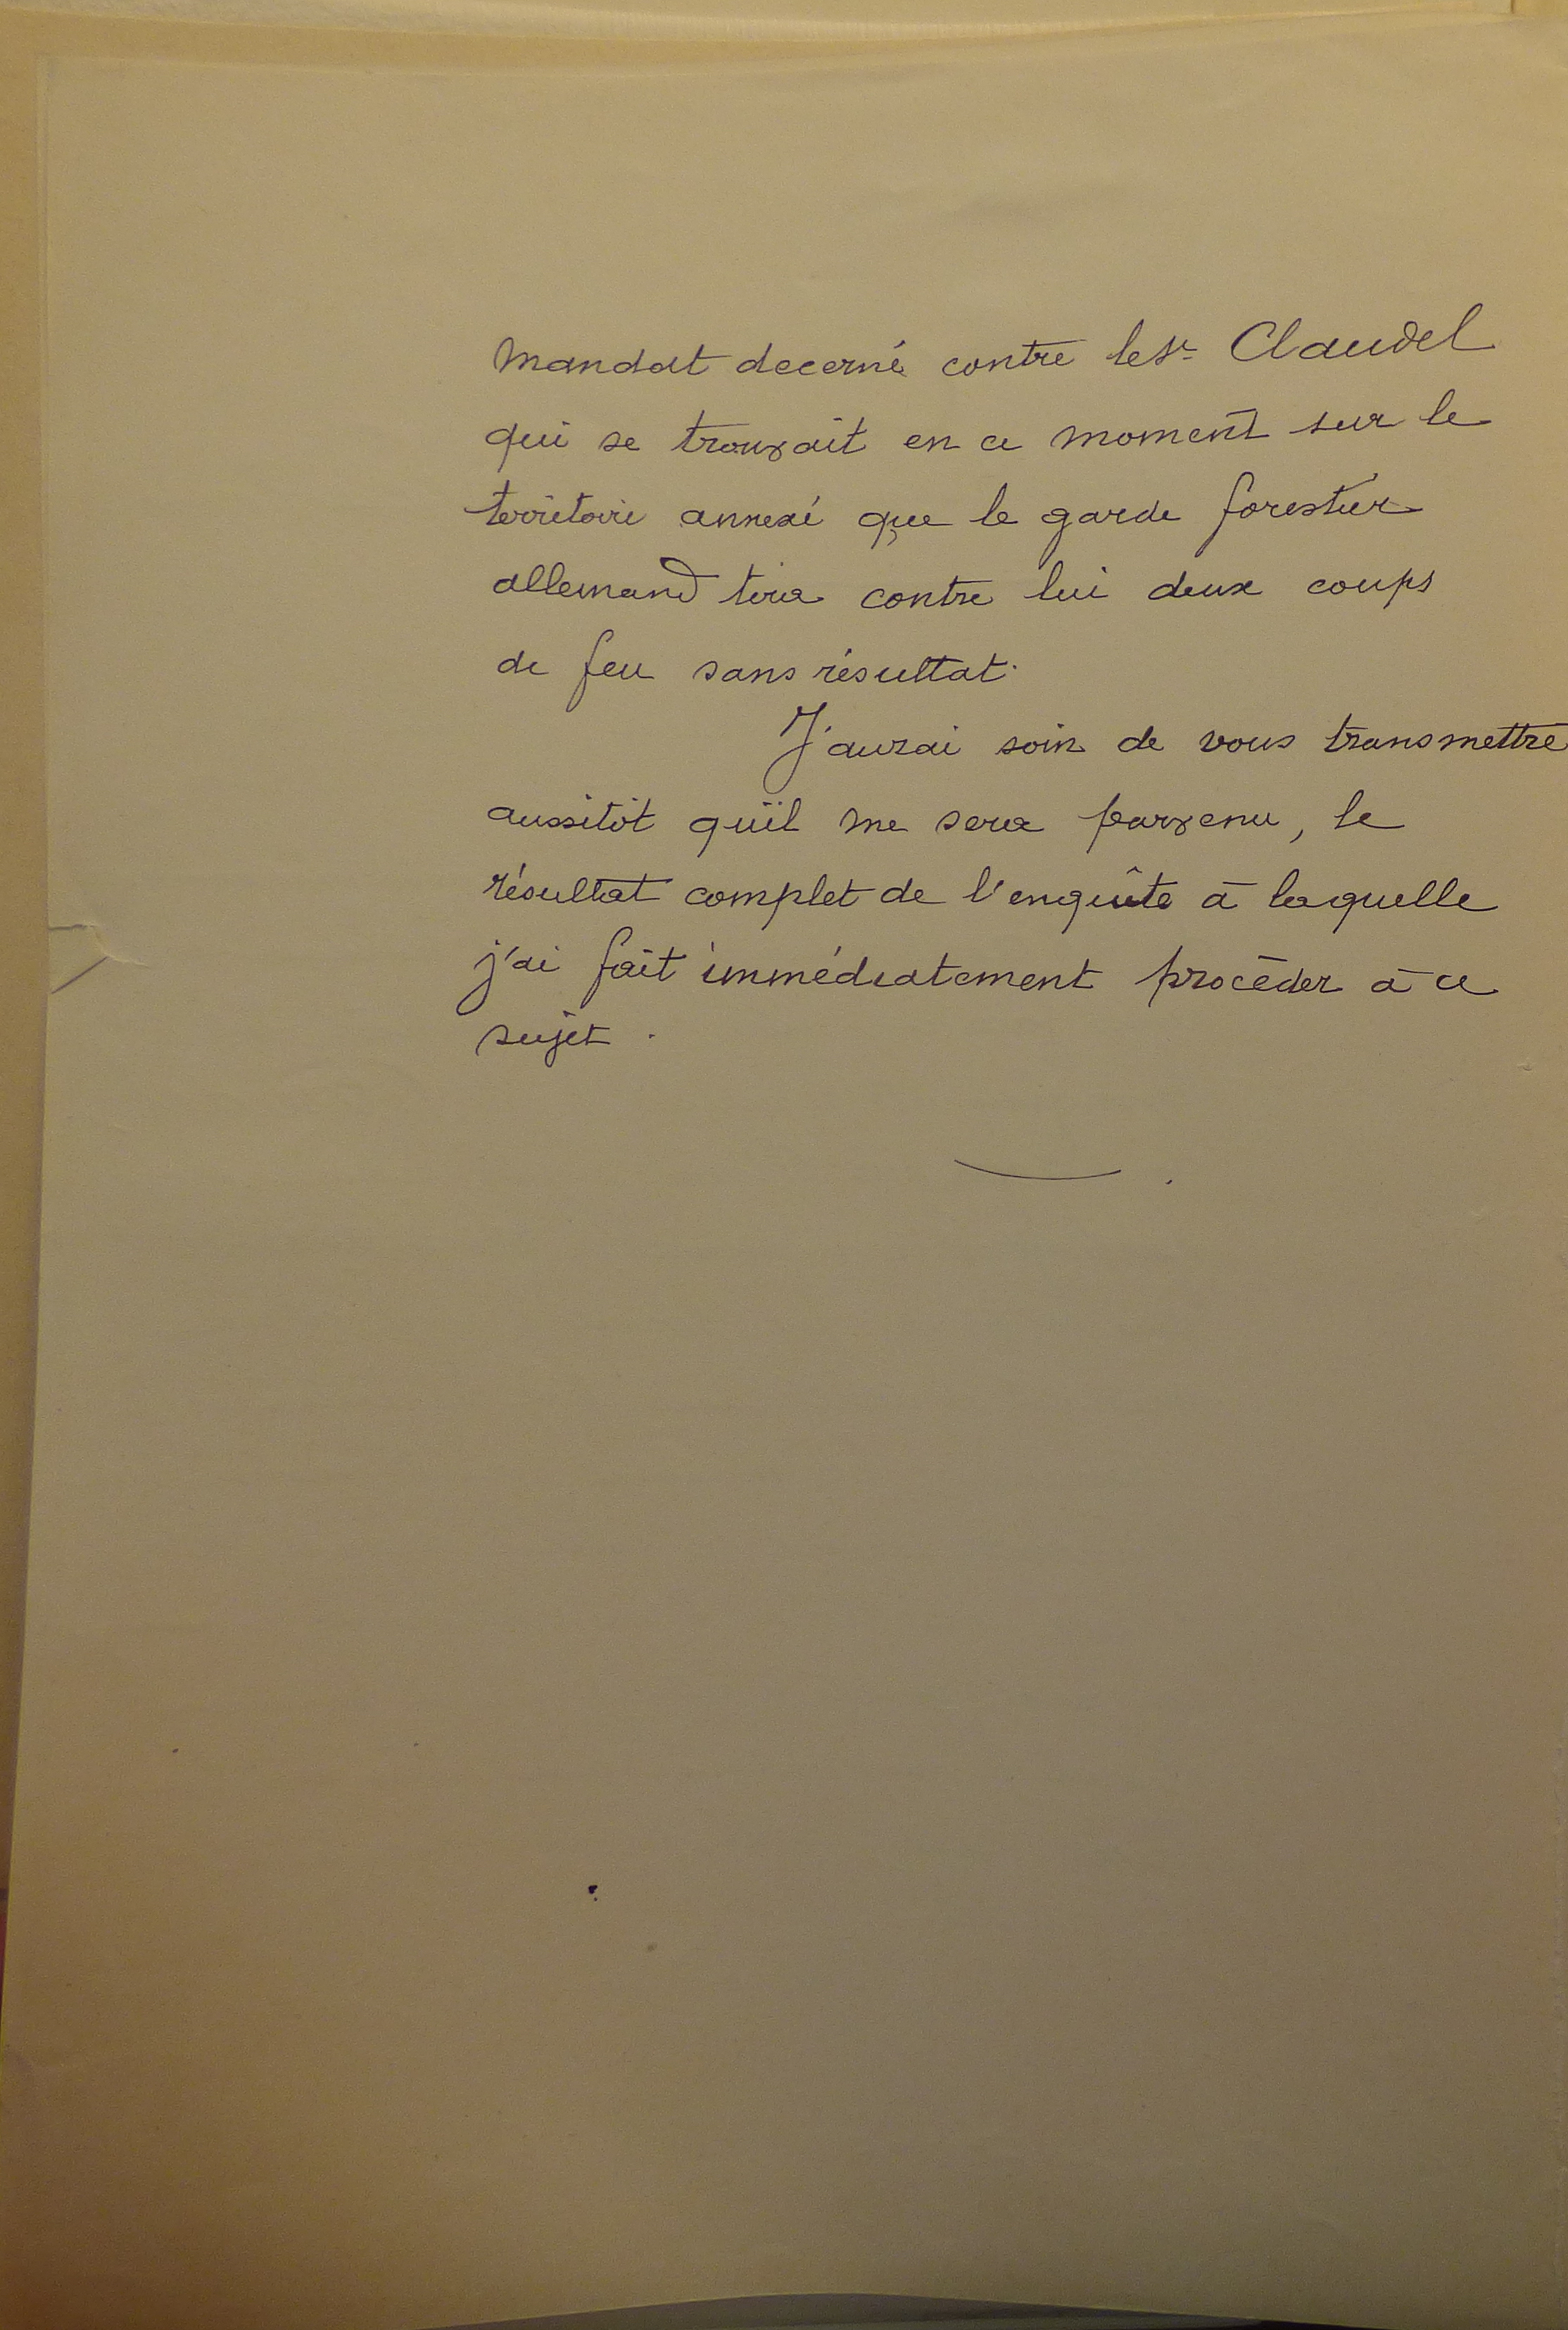 mandat decerné contre le Sr Claudel
qui se trouvait en ce moment sur le
territoire annexé que le garde forestier
allemand tira contre lui deux coups
de feu sans résultat.
J'aurai soin de vous transmettre
aussitôt qu'il me sera parvenu, le
résultat complet de l'enquête à laquelle
j'ai fait immédiatement procéder à ce
sujet.